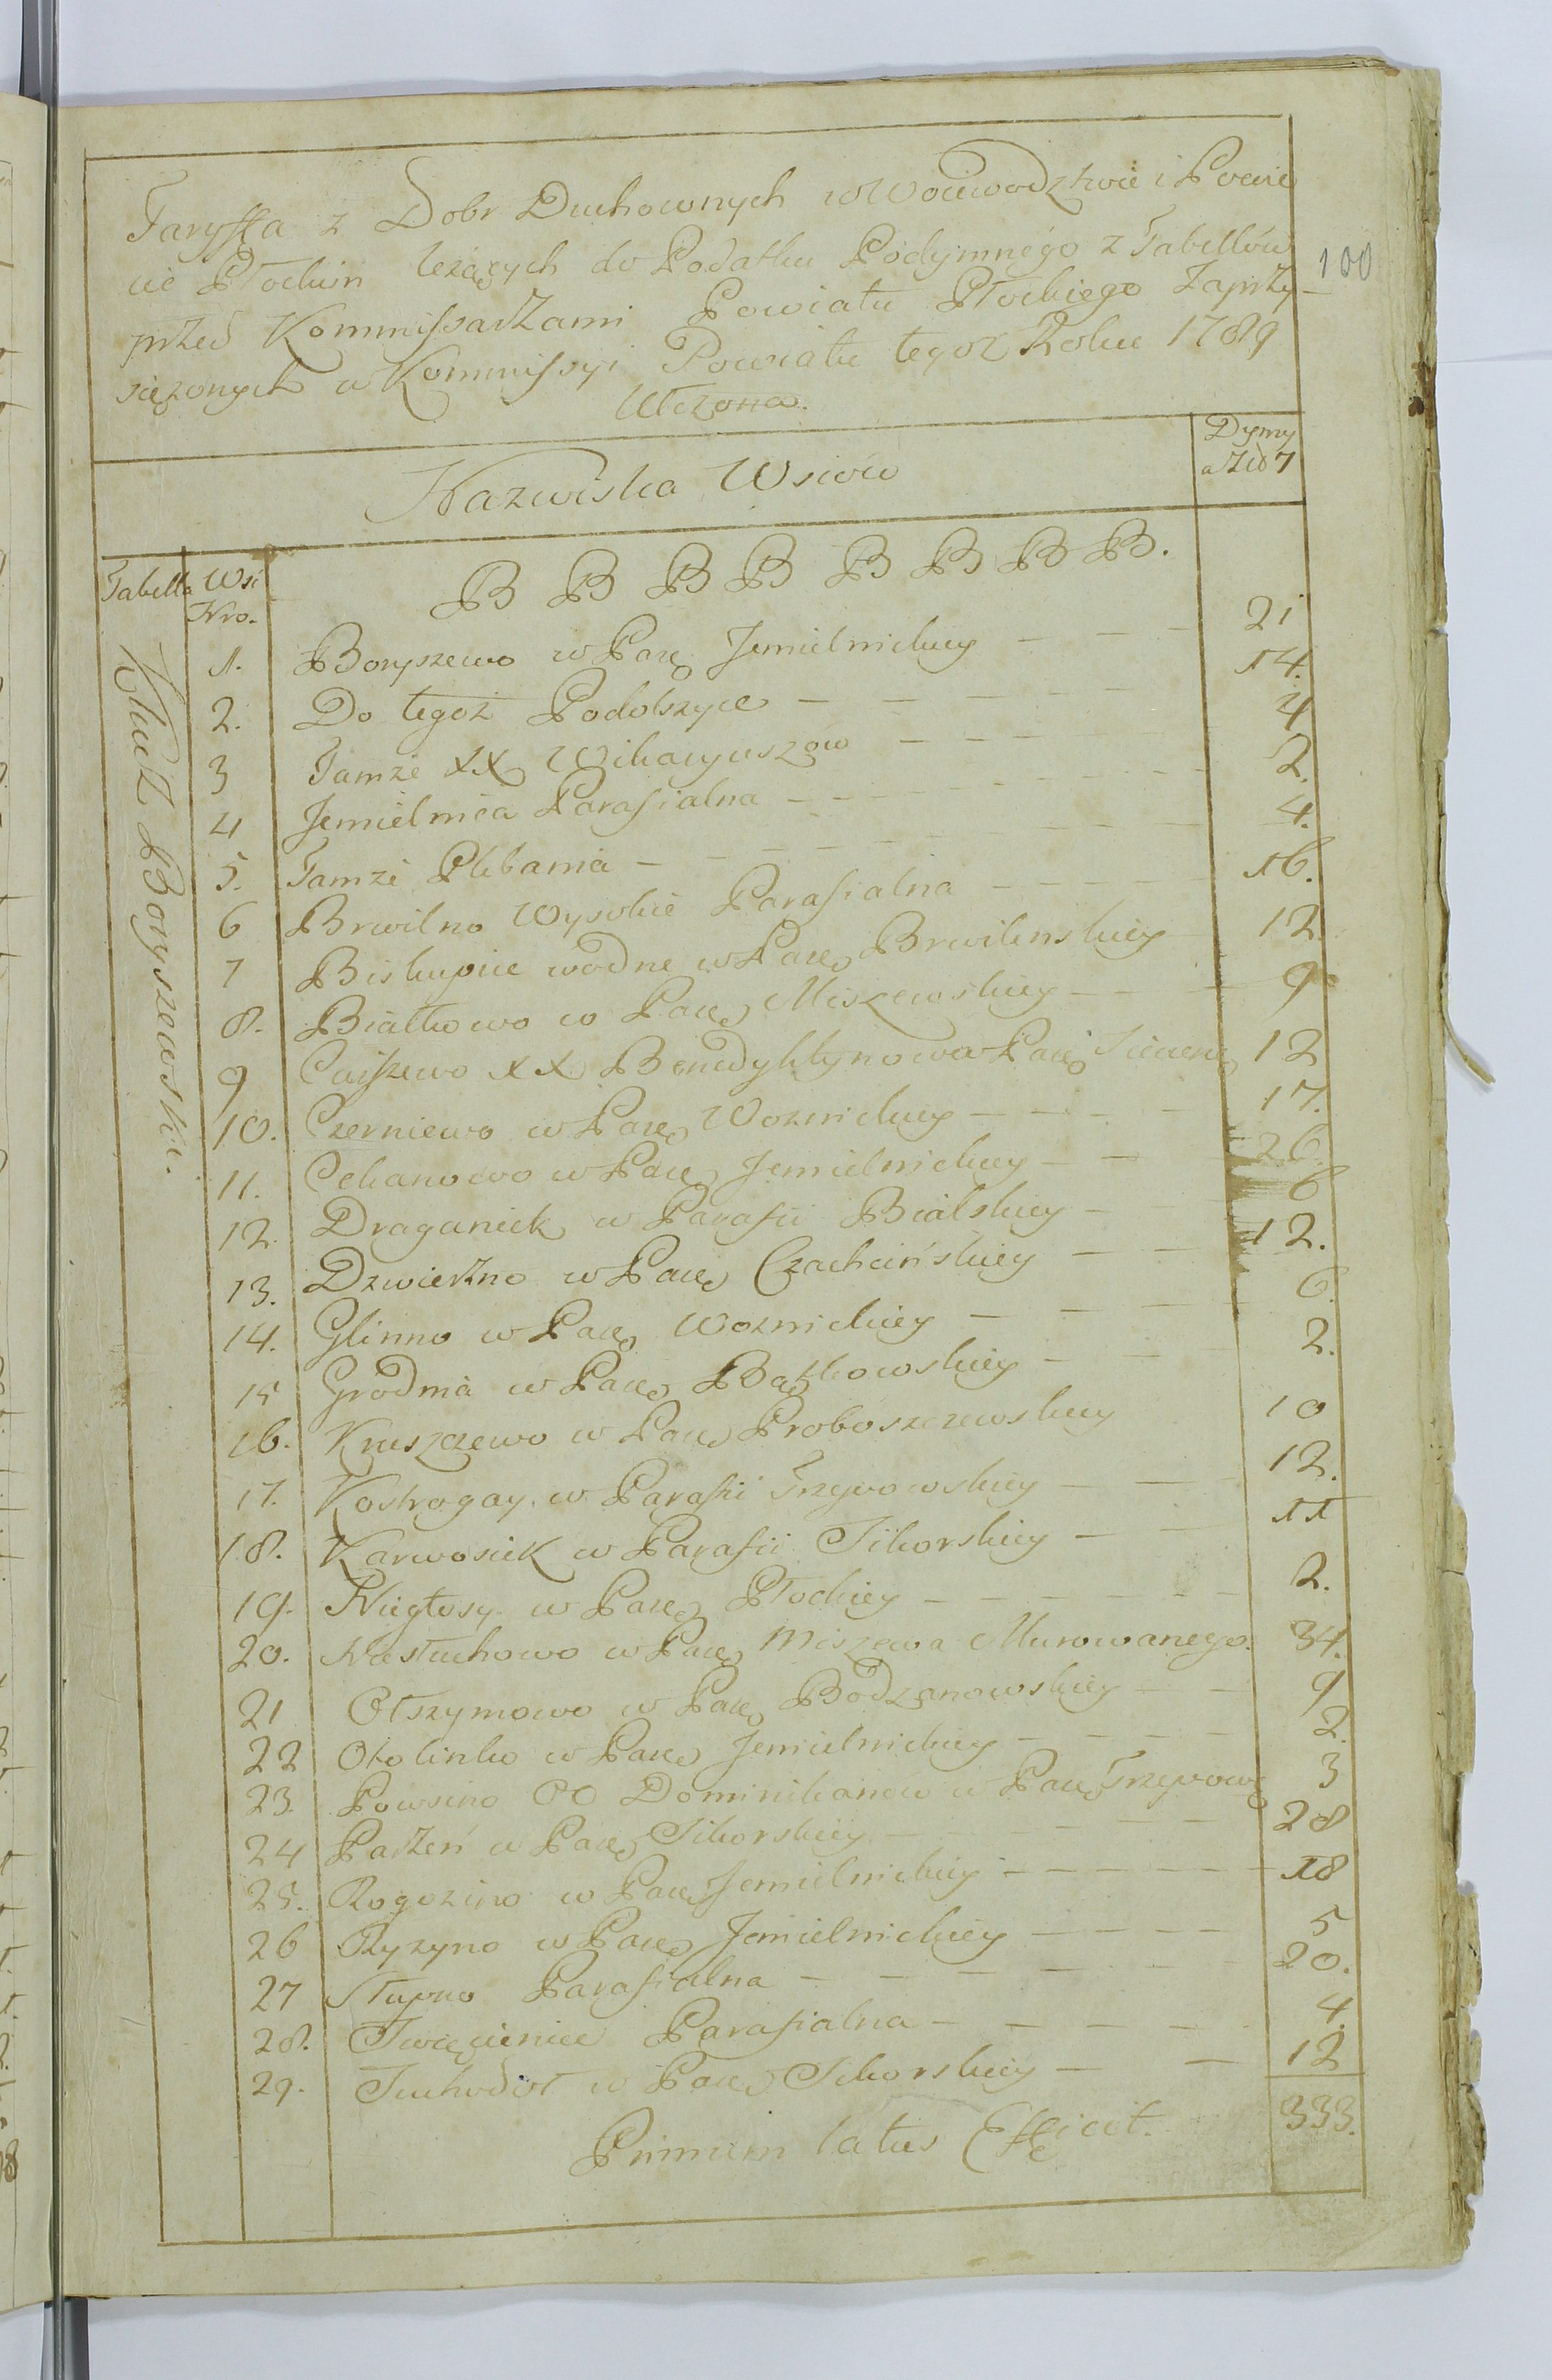 Taryffa z Dobr Duchownych w Woiewodztwie i Powie
cie Płockim leżących do Podatku Podymnego z Tabellow
przed Kommissarzami Powiatu Płockiego Zaprzy-
siężonych w Kommissyi Powiatu tegoż Roku 1789
Ułożona.
100
Nazwiska Wsiow
Dymy
a Zł 7
Tabella
Wsi
Nro.
B B B B B B B B.
Klucz Boryszewski.
1. Boryszewo w Parę Jemielnickiey — — — 21
2. Do tegoż Podolszyce — — — — 14.
3 Tamże XX Wikaryuszow — — — — 4
4 Jemielnica Parafialna — — — — 2.
5. Tamże Plebania — — — — 4.
6 Brwilno Wysokie Parafialna — — — — 16.
7 Biskupice wodne w Parę Brwilenskiey 12
8. Białkowo w Parę Miszewskiey — — — 9
9 Ciuszewo XX Benedyktynow w Parę Siecienę 12
10. Czerniewo w Parę Woznickiey — — — — 17.
11. Cekanowo w Parę Jemielnickiey — — 26
12. Draganiek w Parafii Bialskiey — — 6
13. Dzwierzno w Parę Czachcińskiey — — 12.
14. Glinno w Parę Woznickiey — — — 6.
15 Grodnia w Parę Bądkowskiey — — 2.
16. Kruszczewo w Parę Proboszczewskiey 10
17. Kostrogay w Parafii Trzepowskiey — — 12.
18. Karwosiek w Parafii Sikorskiey — — 11
19. Niegłosy w Parę Płockiey — — — — — 2.
20. Nastuchowo w Parę Miszewa Murowanego. 34.
21 Olszymowo w Parę Bodzanowskiey — — 9
22 Otolinko w Parę Jemielnickiey — — — — 2.
23. Powsino OO Dominikanow w Parę Trzepowę 3
24 Parzeń w Parę Sikorskiey — — — — 28
25. Rogozino w Parę Jemielnickiey — — — — — 18
26 Ryzyno w Parę Jemielnickiey — — — — 5
27 Słupno Parafialna — — — — — 20.
28. Swięcienice Parafialna — — — — 4.
29. Suchodoł w Parę Sikorskiey — — 12
Primum latus Efficit. 333.